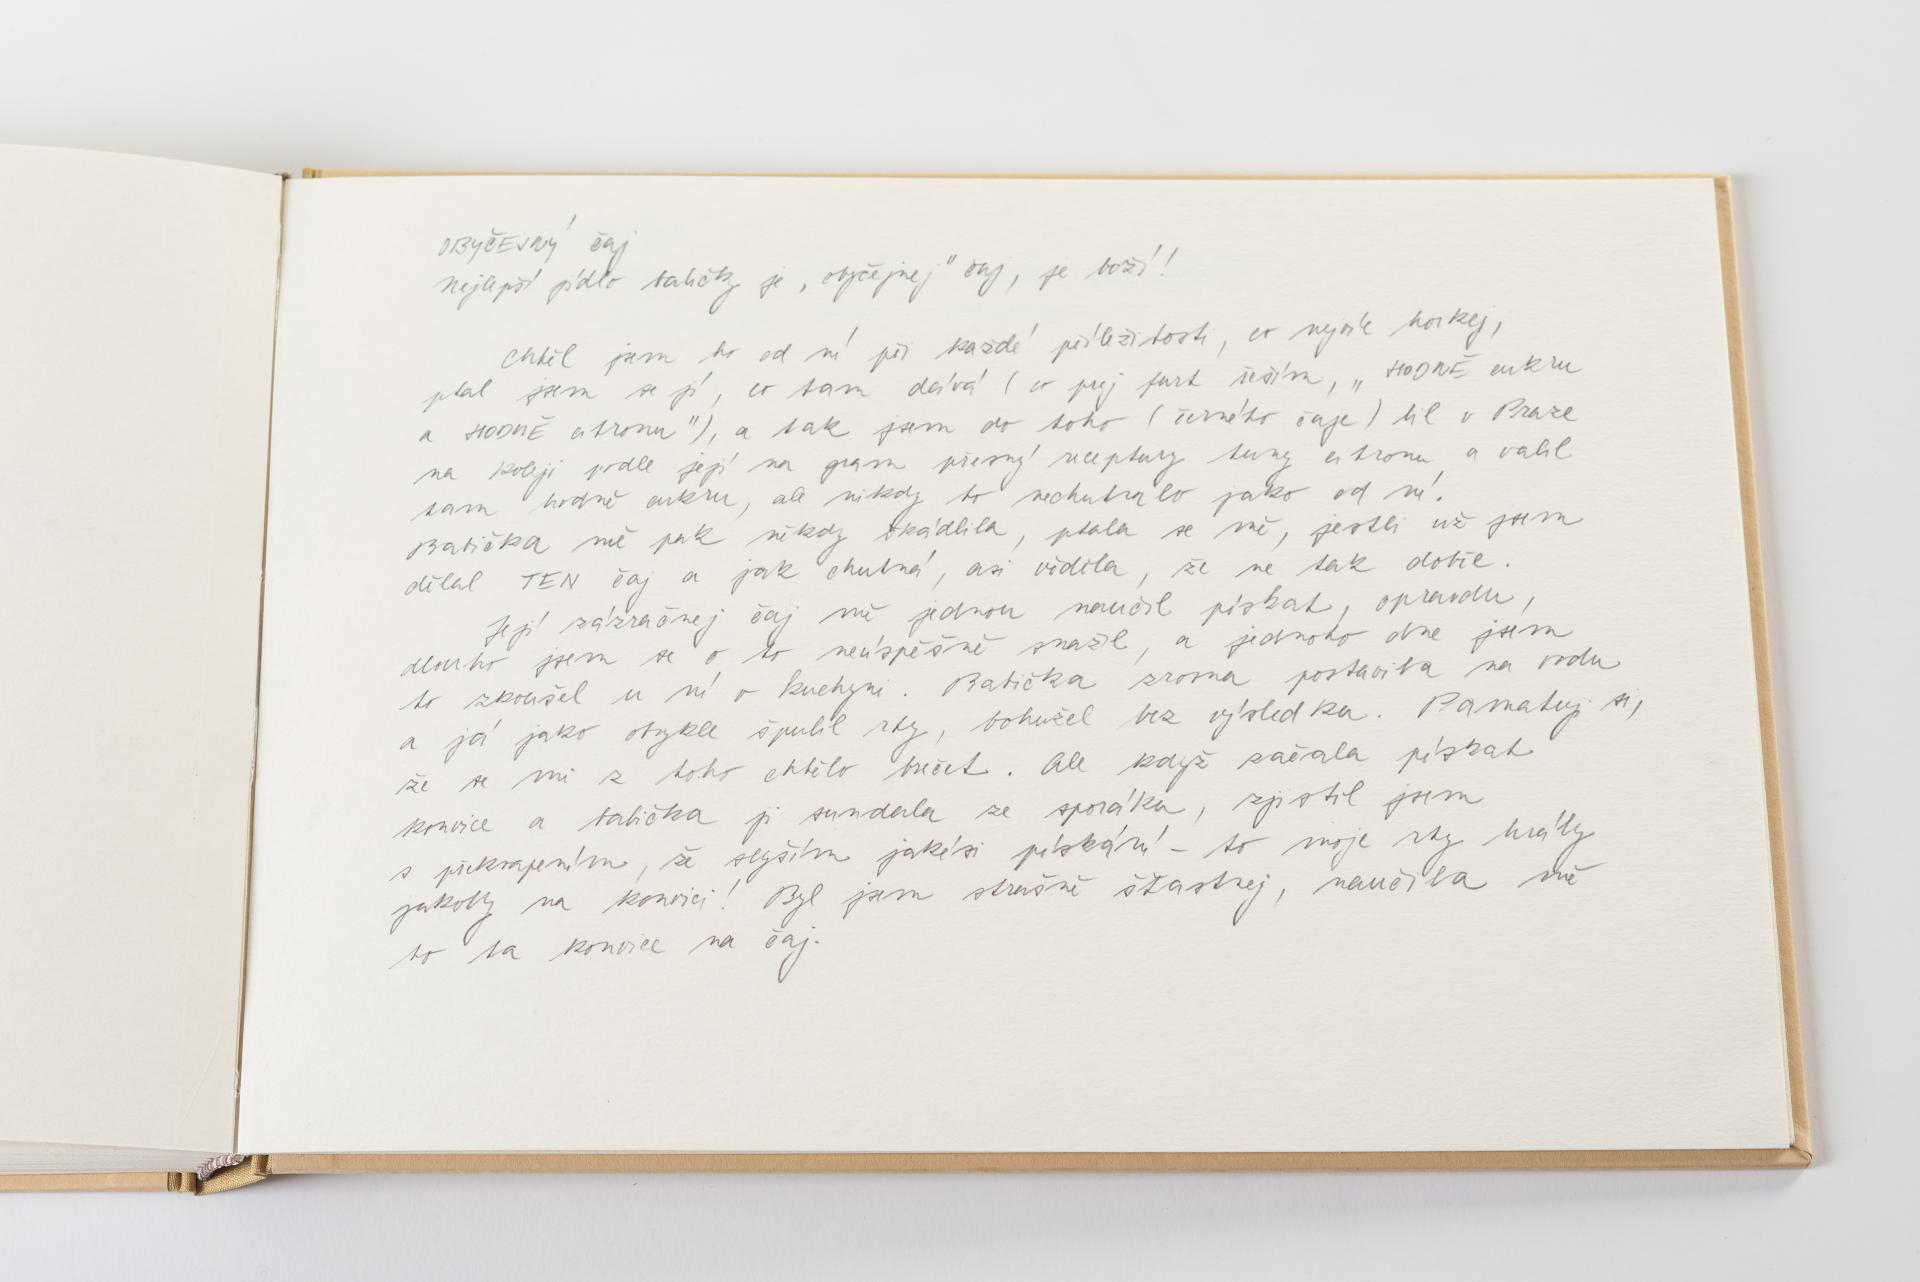 OBYČEJNÝ čaj
Nejlepší jídlo babičky je „obyčejnej" čaj, je boží!
Chtěl jsem ho od ní při každé příležitosti, co nejvíc horkej,
ptal jsem se jí, co tam dává (co prej furt řeším, „HODNĚ cukru
a HODNĚ citronu"), a tak jsem do toho (černého čaje) lil v Praze
na koleji podle její na gram přesný receptury tuny citronu a valil
tam hodně cukru, ale nikdy to nechutnalo jako od ní.
Babička mě pak někdy škádlila, ptala se mě, jestli už jsem
dělal TEN čaj a jak chutná, asi věděla, že ne tak dobře.
Její zázračnej čaj mě jednou naučil pískat, opravdu,
dlouho jsem se o to neúspěšně snažil, a jednoho dne jsem
to zkoušel u ní v kuchyni. Babička zrovna postavila na vodu
a já jako obykle špulil rty, bohužel bez výsledku. Pamatuj si,
že se mi z toho chtělo brečet. Ale když začala pískat
konvice a babička ji sundala ze sporáku, zjistil jsem
s překvapením, že slyším jakési pískání – to moje rty hrály
jakoby na konvici! Byl jsem strašně šťastnej, naučila mě
to ta konvice na čaj.